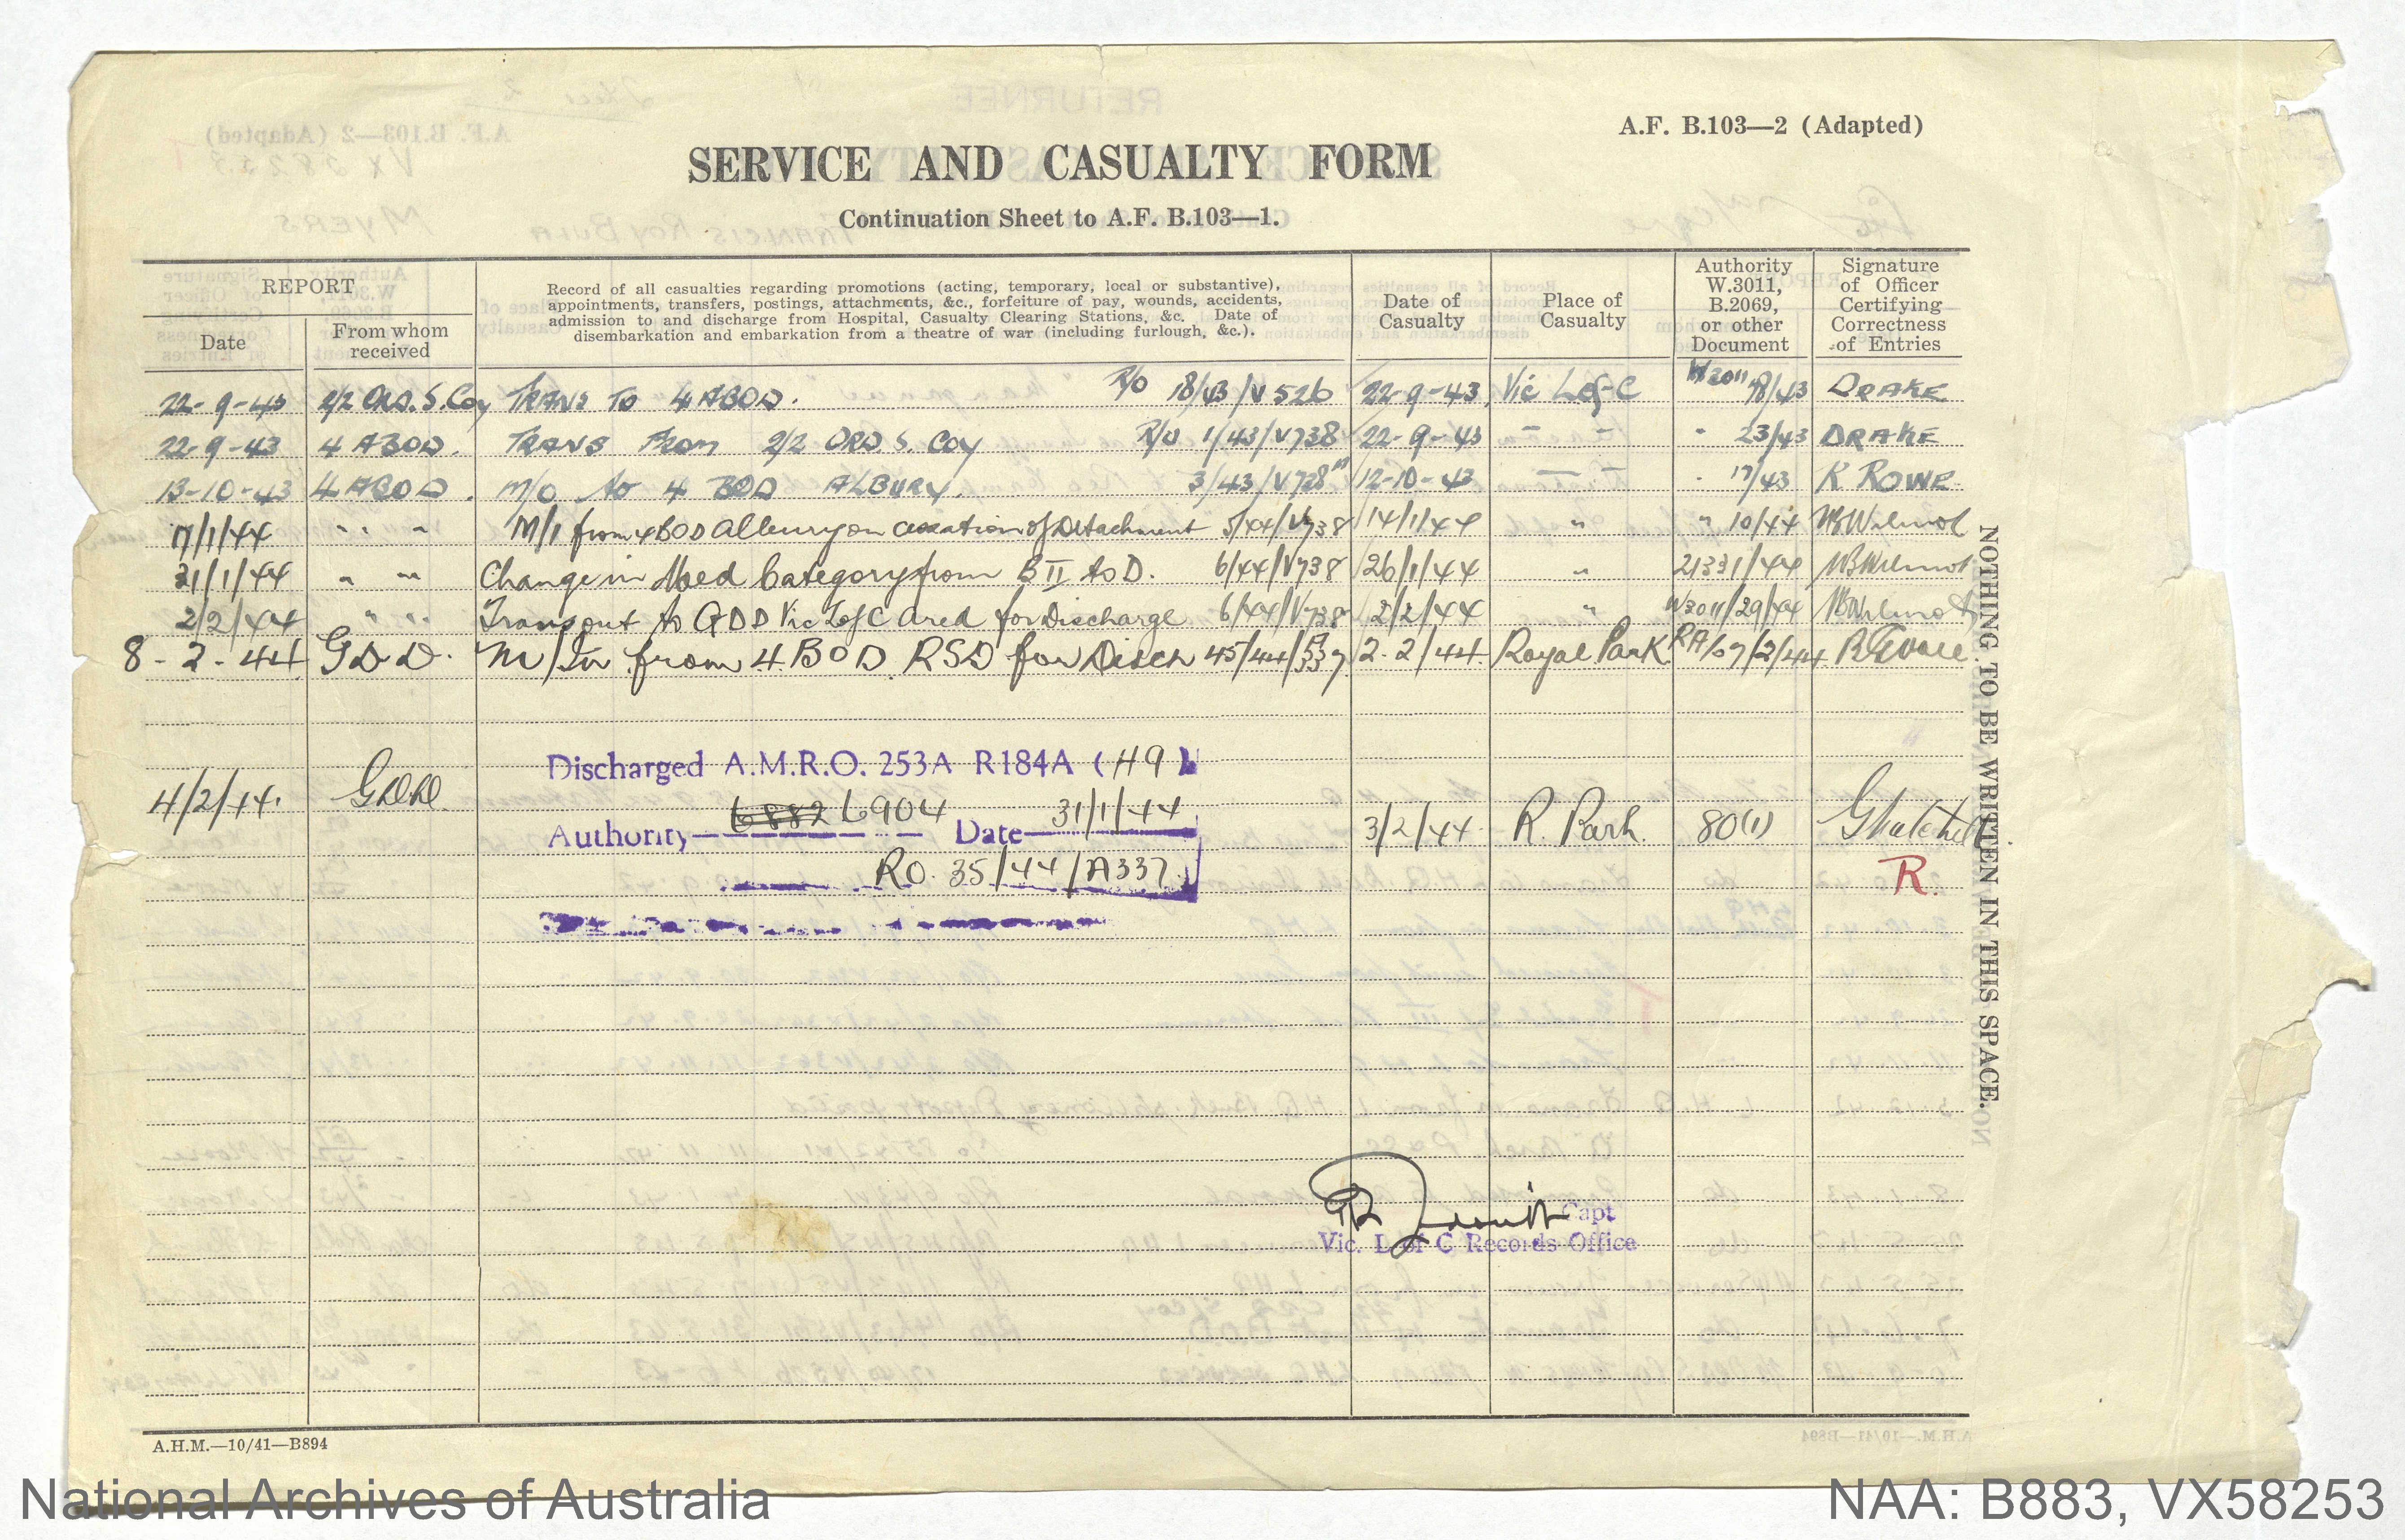 A.F. B.103—2 (Adapted)
SERVICE AND CASUALTY FORM
Continuation Sheet to A.F. B.103—1.
REPORT
Date
From whom received
Record of all casualties regarding promotions (acting, temporary, local or substantive),
appointments, transfers, postings, attachments, &c., forfeiture of pay, wounds, accidents,
admission to and discharge from Hospital, Casualty Clearing Stations, &c. Date of
disembarkation and embarkation from a theatre of war (including furlough, &c.).
Date of Casualty
Place of Casualty
Authority W.3011, B.2069, or other Document
Signature of Officer Certifying Correctness of Entries
22-9-43 2/2 Ord. S. Coy TRANS TO 4 ABOD. R/O 18/43/V526 22-9-43 Vic LofC W3011 78/43 DRAKE
22-9-43 4 ABOD. TRANS From 2/2 ORD. S. Coy R/O 1/43/V738 22-9-43 " " " 23/43 DRAKE
13-10-43 4 ABOD. M/O to 4 BOD ALBURY. 3/43/V738 12-10-43 " " " 17/43 K ROWE
17/1/44 " " " M/I from 4 BOD Albury on cessation of Detachment 5/44/V738 14/1/44 " " 10/44 Wilmot
31/1/44 " " Change in Med Category from B II to D. 6/44/V738 26/1/44 " 21331/44 Wilmot
2/2/44 " " Trans out to GDD Vic LofC Area for Discharge 6/44/V738 2/2/44 " W3011/29/44 Wilmot
8-2-44 GDD. M/In from 4. BOD RSD for Disch 45/44/ 2.2/44 Royal Park RA/ /2/44
Discharged A.M.R.O. 253A R184A (H9)
4/2/44. GDD. 6882 6904 31/1/44
Authority Date 3/2/44 R. Park. 80(1)
RO. 35/44/A337.
R.
NOTHING TO BE WRITTEN IN THIS SPACE.
Capt
Vic. L of C Records Office
A.H.M.—10/41—B894
National Archives of Australia
NAA: B883, VX58253